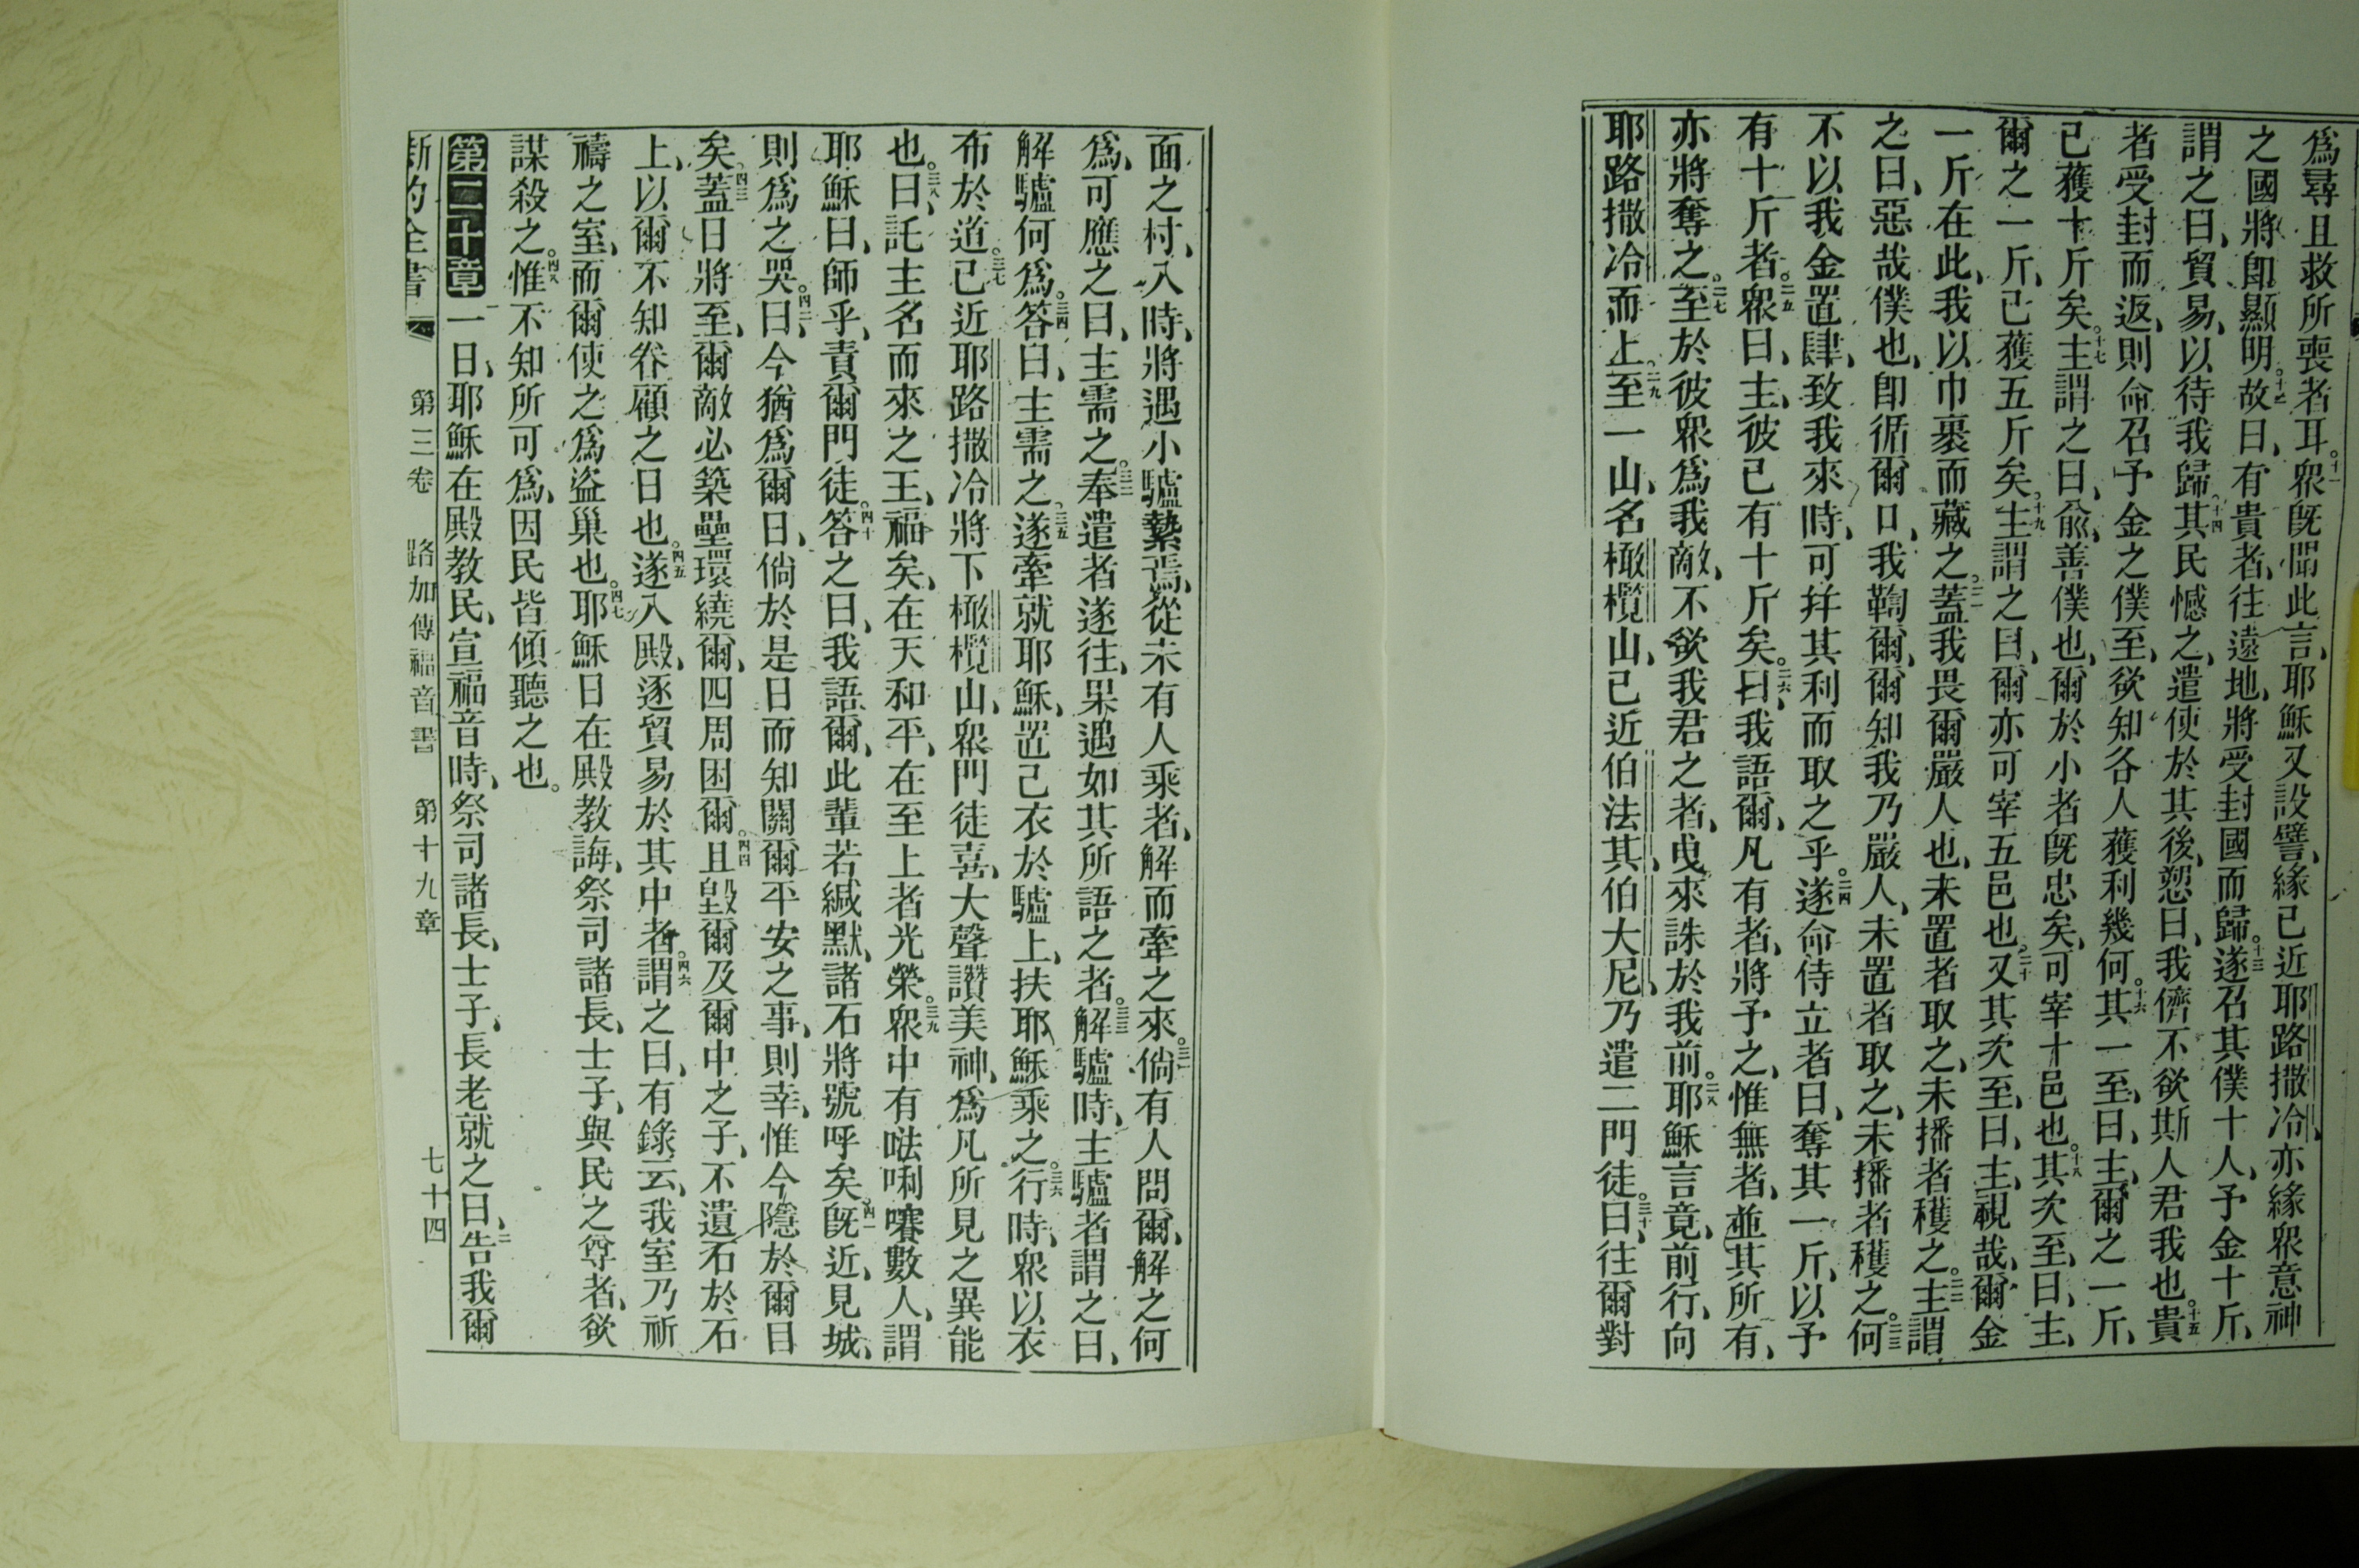 爲尋且救所喪者耳。十一衆旣聞此言、耶穌又設譬、緣已近耶路撒冷、亦緣衆意神
之國將卽顯明。十二故曰、有貴者、往遠地、將受封國而歸。十三遂召其僕十人、予金十斤、
謂之曰、貿易、以待我歸。十四其民憾之、遣使於其後、愬曰、我儕不欲斯人君我也。十五貴
者受封而返、則命召予金之僕至、欲知各人獲利幾何。十六其一至、曰、主、爾之一斤、
已獲十斤矣。十七主謂之曰、兪、善僕也、爾於小者旣忠矣、可宰十邑也。十八其次至、曰、主、
爾之一斤、已獲五斤矣。十九主謂之曰、爾亦可宰五邑也。二十又其次至、曰、主、視哉、爾金
一斤在此、我以巾裹而藏之。二一蓋我畏爾嚴人也、未置者取之、未播者穫之。二二主謂
之曰、惡哉僕也、卽循爾口、我鞫爾、爾知我乃嚴人、未置者取之、未播者穫之。二三何
不以我金置肆、致我來時、可幷其利而取之乎。二四遂命侍立者曰、奪其一斤、以予
有十斤者。二五衆曰、主、彼已有十斤矣。二六曰、我語爾、凡有者、將予之、惟無者、並其所有、
亦將奪之。二七至於彼衆爲我敵、不欲我君之者、曳來誅於我前。二八耶穌言竟、前行、向
耶路撒冷而上。二九至一山、名橄欖山、已近伯法其、伯大尼、乃遣二門徒。三十曰、往爾對
面之村、入時、將遇小驢縶焉、從未有人乘者、解而牽之來。三一倘有人問爾、解之何
爲、可應之曰、主需之。三二奉遣者遂往、果遇如其所語之者。三三解驢時、主驢者謂之曰、
解驢何爲。三四答曰、主需之。三五遂牽就耶穌、置己衣於驢上、扶耶穌乘之。三六行時、衆以衣
布於道。三七已近耶路撒冷、將下橄欖山、衆門徒喜、大聲讚美神、爲凡所見之異能
也。三八曰、託主名而來之王、福矣、在天和平、在至上者光榮。三九衆中有𠵽唎㘔數人、謂
耶穌曰、師乎、責爾門徒。四十答之曰、我語爾、此輩若緘默、諸石將號呼矣。四一旣近、見城、
則爲之哭。四二曰、今猶爲爾日、倘於是日而知關爾平安之事、則幸、惟今隱於爾目
矣。四三蓋日將至、爾敵必築壘環繞爾、四周困爾。四四且毀爾及爾中之子、不遺石於石
上、以爾不知眷顧之日也。四五遂入殿、逐貿易於其中者。四六謂之曰、有錄云、我室乃祈
禱之室、而爾使之爲盜巢也。四七耶穌日在殿教誨、祭司諸長、士子、與民之尊者、欲
謀殺之。四八惟不知所可爲、因民皆傾聽之也。
第二十章 一一日、耶穌在殿教民、宣福音時、祭司諸長、士子、長老就之曰、二告我爾
新約全書 第三卷 路加傳福音書 第十九章 七十四